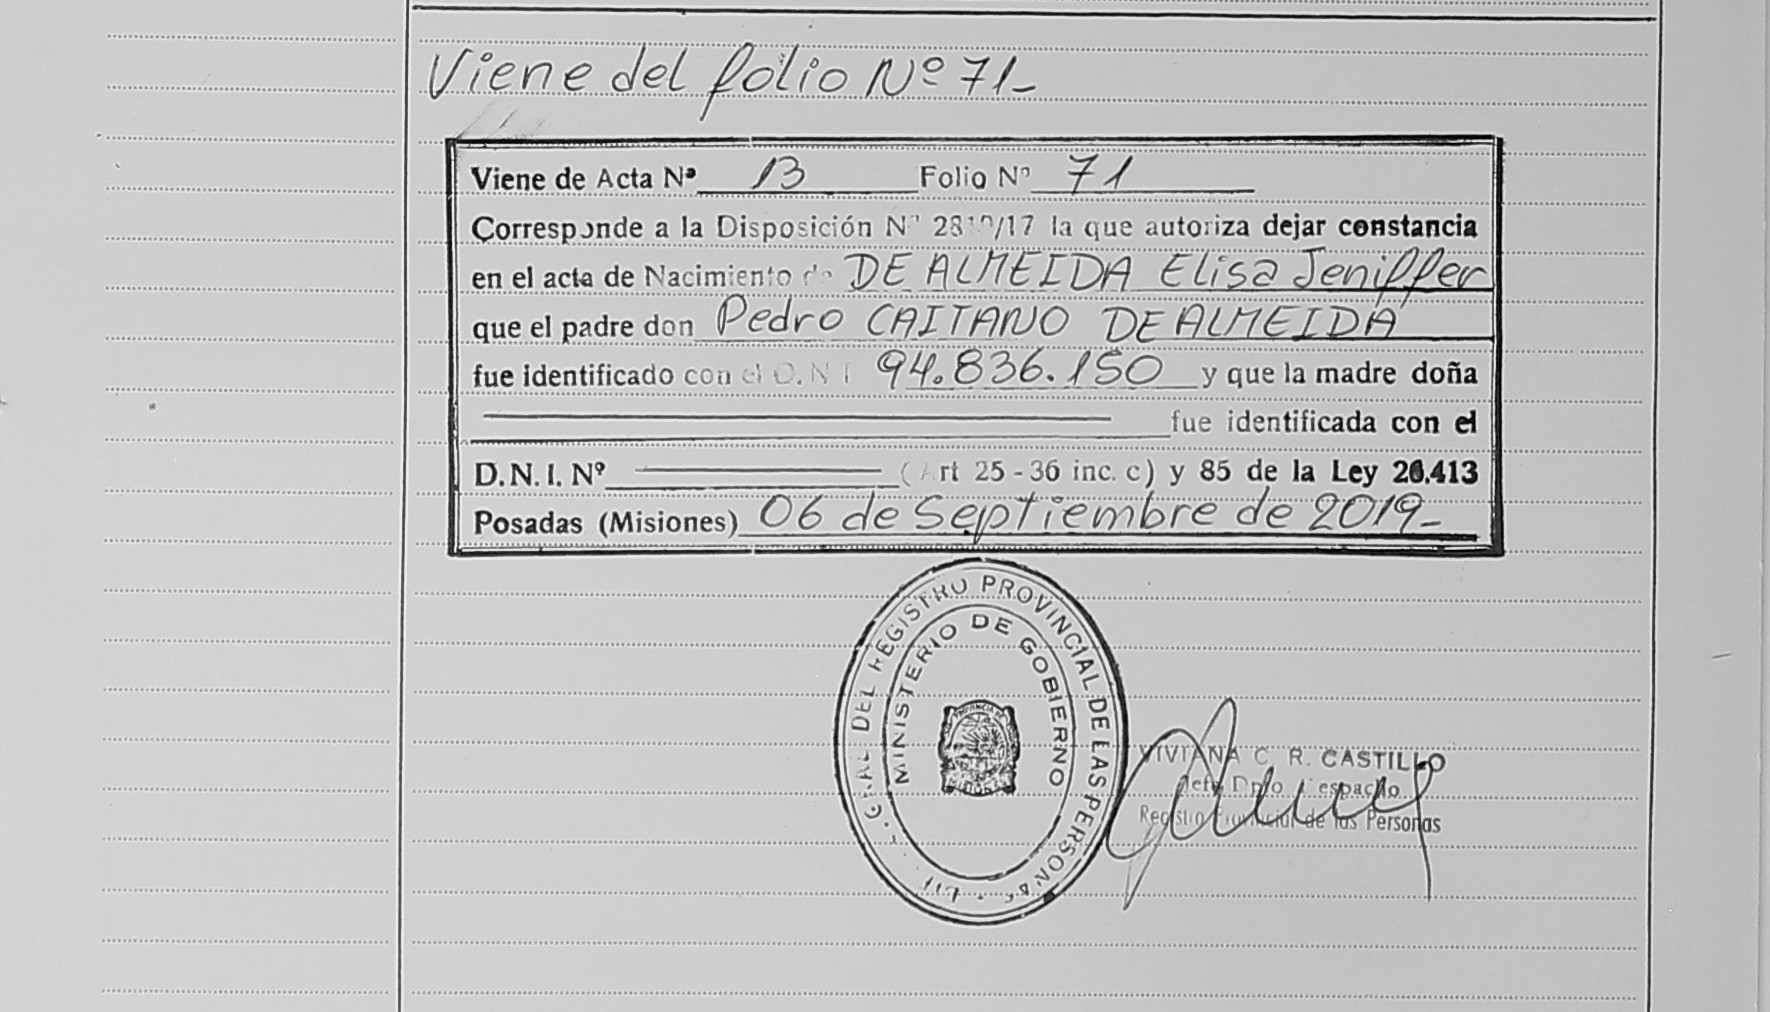 Viene del folio Nº 71_
Viene de Acta Nº 13 Folio Nº 71
Corresponde a la Disposición Nº /17 la que autoriza dejar constancia
en el acta de Nacimiento de DE ALMEIDA Elisa Jeniffer
que el padre don Pedro CAITANO DE ALMEIDA
fue identificado con el D.N.I 94.836.150 y que la madre doña
fue identificada con el
D.N.I. Nº (Art 25 - 36 inc. c) y 85 de la Ley 26.413
Posadas (Misiones) 06 de Septiembre de 2019_
DEL REGISTRO PROVINCIAL DE LAS PERSONAS
MINISTERIO DE GOBIERNO
PROVINCIA DE
MISIONES
VIVIANA C. R. CASTILLO
Jefe Dpto Despacho
Registro Provincial de las Personas